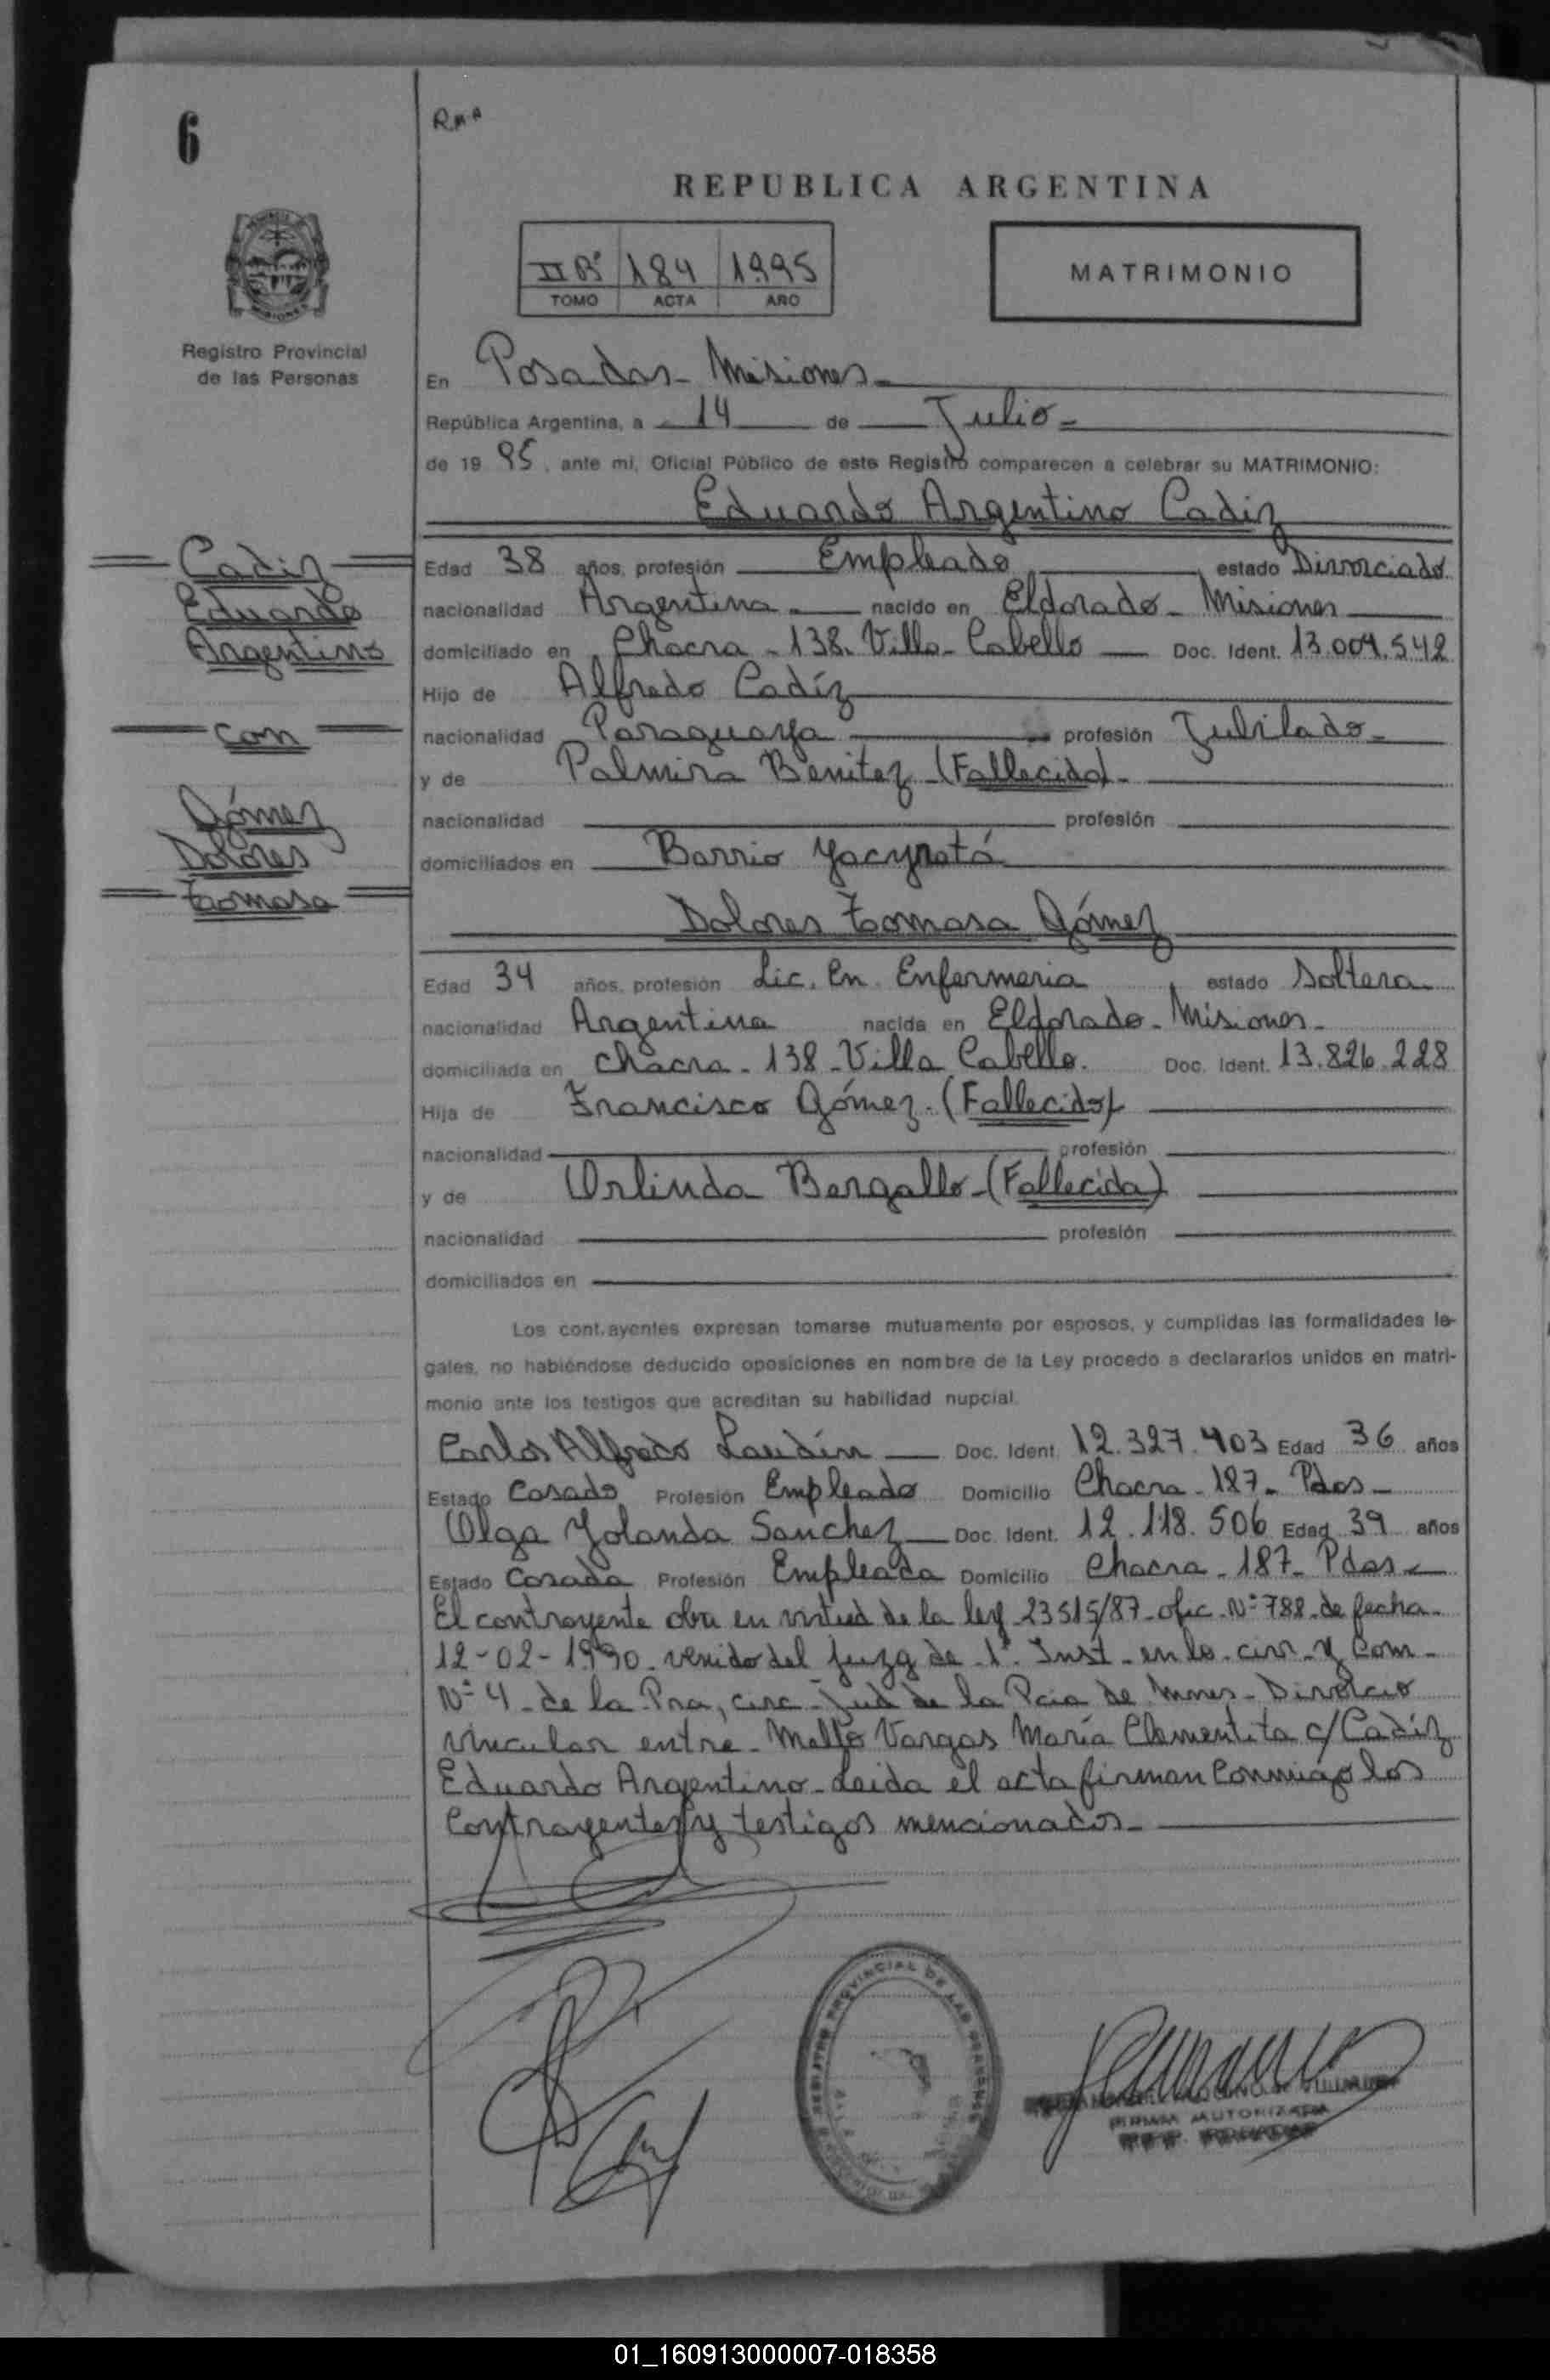 6
R.M.A
REPUBLICA ARGENTINA
II Bº 184 1995
TOMO ACTA AÑO
MATRIMONIO
Registro Provincial
de las Personas
En Posadas - Misiones -
República Argentina, a 14 de Julio -
de 19 95, ante mi, Oficial Público de este Registro comparecen a celebrar su MATRIMONIO:
Eduardo Argentino Cadiz
Cadiz
Eduardo
Argentino
con
Gómez
Dolores
Tomasa
Edad 38 años, profesión Empleado estado Divorciado
nacionalidad Argentina - nacido en Eldorado - Misiones
domiciliado en Chacra - 138 - Villa - Cabello Doc. Ident. 13.004.542
Hijo de Alfredo Cadíz
nacionalidad Paraguaya profesión Jubilado -
y de Palmira Benitez - (Fallecida) -
nacionalidad profesión
domiciliados en Barrio Yacyretá
Dolores Tomasa Gómez
Edad 34 años, profesión Lic. En Enfermeria estado Soltera
nacionalidad Argentina nacida en Eldorado - Misiones -
domiciliada en Chacra - 138 - Villa Cabello. Doc. Ident. 13.826.228
Hija de Francisco Gómez - (Fallecido)
nacionalidad profesión
y de Orlinda Bergallo - (Fallecida)
nacionalidad profesión
domiciliados en
Los contrayentes expresan tomarse mutuamente por esposos, y cumplidas las formalidades le-
gales, no habiéndose deducido oposiciones en nombre de la Ley procedo a declararlos unidos en matri-
monio ante los testigos que acreditan su habilidad nupcial.
Carlos Alfredo Landín Doc. Ident. 12.327.403 Edad 36 años
Estado Casado Profesión Empleado Domicilio Chacra - 187 - Pdas -
Olga Yolanda Sanchez Doc. Ident. 12.118.506 Edad 39 años
Estado Casada Profesión Empleada Domicilio Chacra - 187 - Pdas -
El contrayente obra en virtud de la ley 23515/87 - ofic - Nº 788 - de fecha -
12-02-1990 - venido del juzg de 1ª Inst - en lo - civ - y Com -
Nº 4 - de la Pra, circ - Jud de la Pcia de Mnes - Divorcio
vincular entre - Mello Vargas María Clementita c/ Cadíz
Eduardo Argentino - Leida el acta firman conmigo los
Contrayentes y testigos mencionados -
REGISTRO PROVINCIAL DE LAS PERSONAS
FIRMA AUTORIZADA
01_160913000007-018358